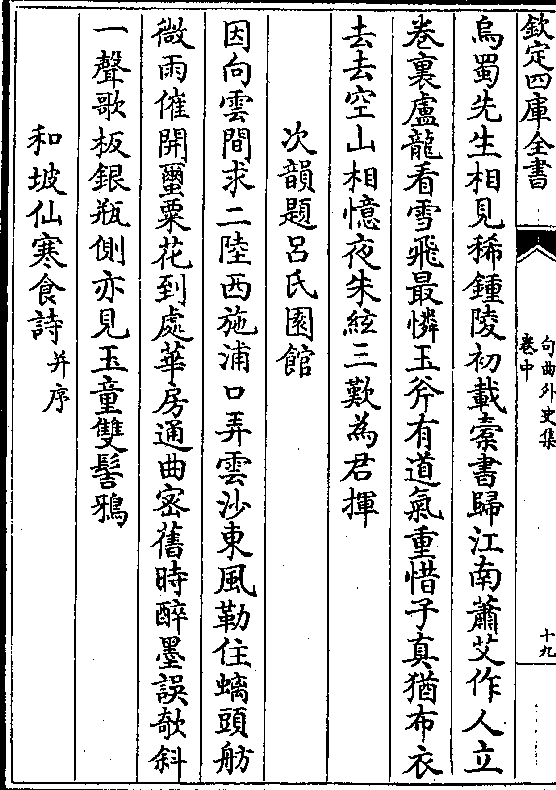 欽定四庫全書
句曲外史集
卷中
十九
烏蜀先生相見稀鍾陵初載橐書歸江南蕭艾作人立
卷裏盧龍看雪飛最憐玉斧有道氣重惜子真猶布衣
去去空山相憶夜朱絃三歎為君揮
次韻題呂氏園館
因向雲間求二陸西施浦口弄雲沙東風勒住螭頭舫
微雨催開罌粟花到處華房通曲密舊時醉墨誤欹斜
一聲歌板銀瓶側亦見玉童雙髻鴉
和坡仙寒食詩并序